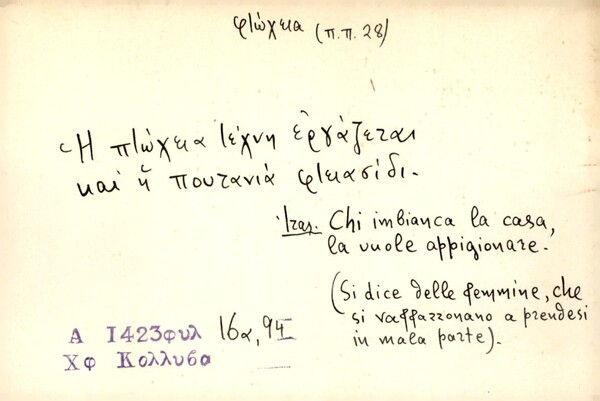 φτώχεια (π.π. 28)
Ἡ πτώχεια τέχνη ἐργάζεται
καὶ ἡ πουτανιά φτιασίδι.
Ἰταλ. Chi imbianca la casa,
la vuole appigionare.
(Si dice delle femmine, che
si raffazzonano a prendesi
in mala parte).
Α 1423φυλ 16α, 94
Χφ Κολλυβα